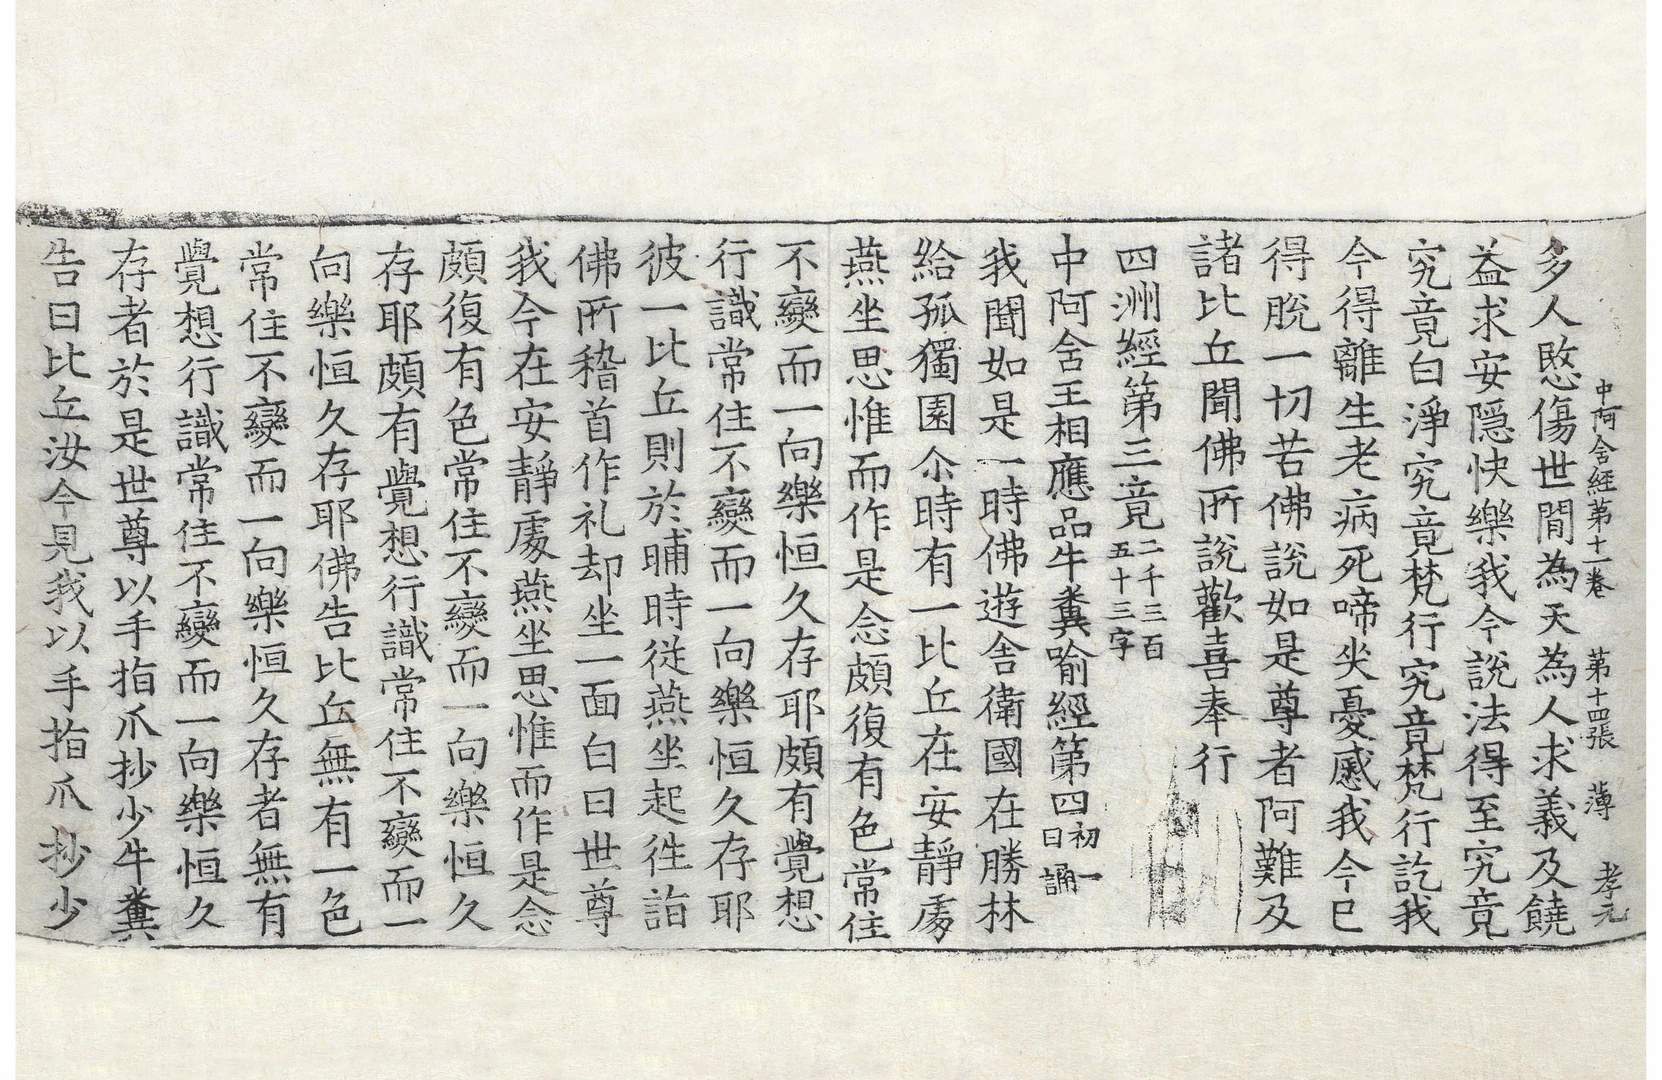 中阿含経第十一卷　第十四張　薄　孝元
多人愍傷世間為天為人求義及饒
益求安隠快樂我今說法得至究竟
究竟白淨究竟梵行究竟梵行訖我
今得離生老病死啼㘴憂慼我今已
得脫一切苦佛說如是尊者阿難及
諸比丘聞佛所說歡喜奉行
四洲經第三竟二千三百五十三字
中阿含王相應品牛糞喻經第四初一日誦
我聞如是一時佛遊舍衛國在勝林
給孤獨園尒時有一比丘在安靜處
燕坐思惟而作是念頗復有色常住
不變而一向樂恒久存耶頗有覺想
行識常住不變而一向樂恒久存耶
彼一比丘則於晡時従燕坐起徃詣
佛所稽首作礼却坐一面白曰世尊
我今在安靜處燕坐思惟而作是念
頗復有色常住不變而一向樂恒久
存耶頗有覺想行識常住不變而一
向樂恒久存耶佛告比丘無有一色
常住不變而一向樂恒久存者無有
覺想行識常住不變而一向樂恒久
存者於是世尊以手指爪抄少牛糞
告曰比丘汝今見我以手指爪抄少